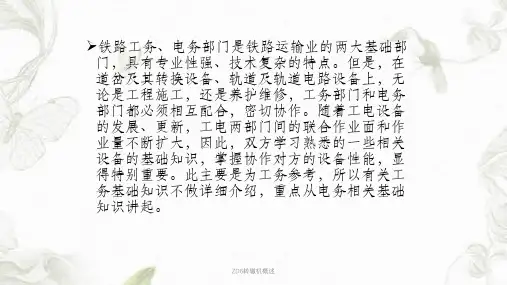 ➢铁路工务、电务部门是铁路运输业的两大基础部
门，具有专业性强、技术复杂的特点。但是，在
道岔及其转换设备、轨道及轨道电路设备上，无
论是工程施工，还是养护维修，工务部门和电务
部门都必须相互配合，密切协作。随着工电设备
的发展、更新，工电两部门间的联合作业面和作
业量不断扩大，因此，双方学习熟悉的一些相关
设备的基础知识，掌握协作对方的设备性能，显
得特别重要。此主要是为工务参考，所以有关工
务基础知识不做详细介绍，重点从电务相关基础
知识讲起。
ZD6转辙机概述